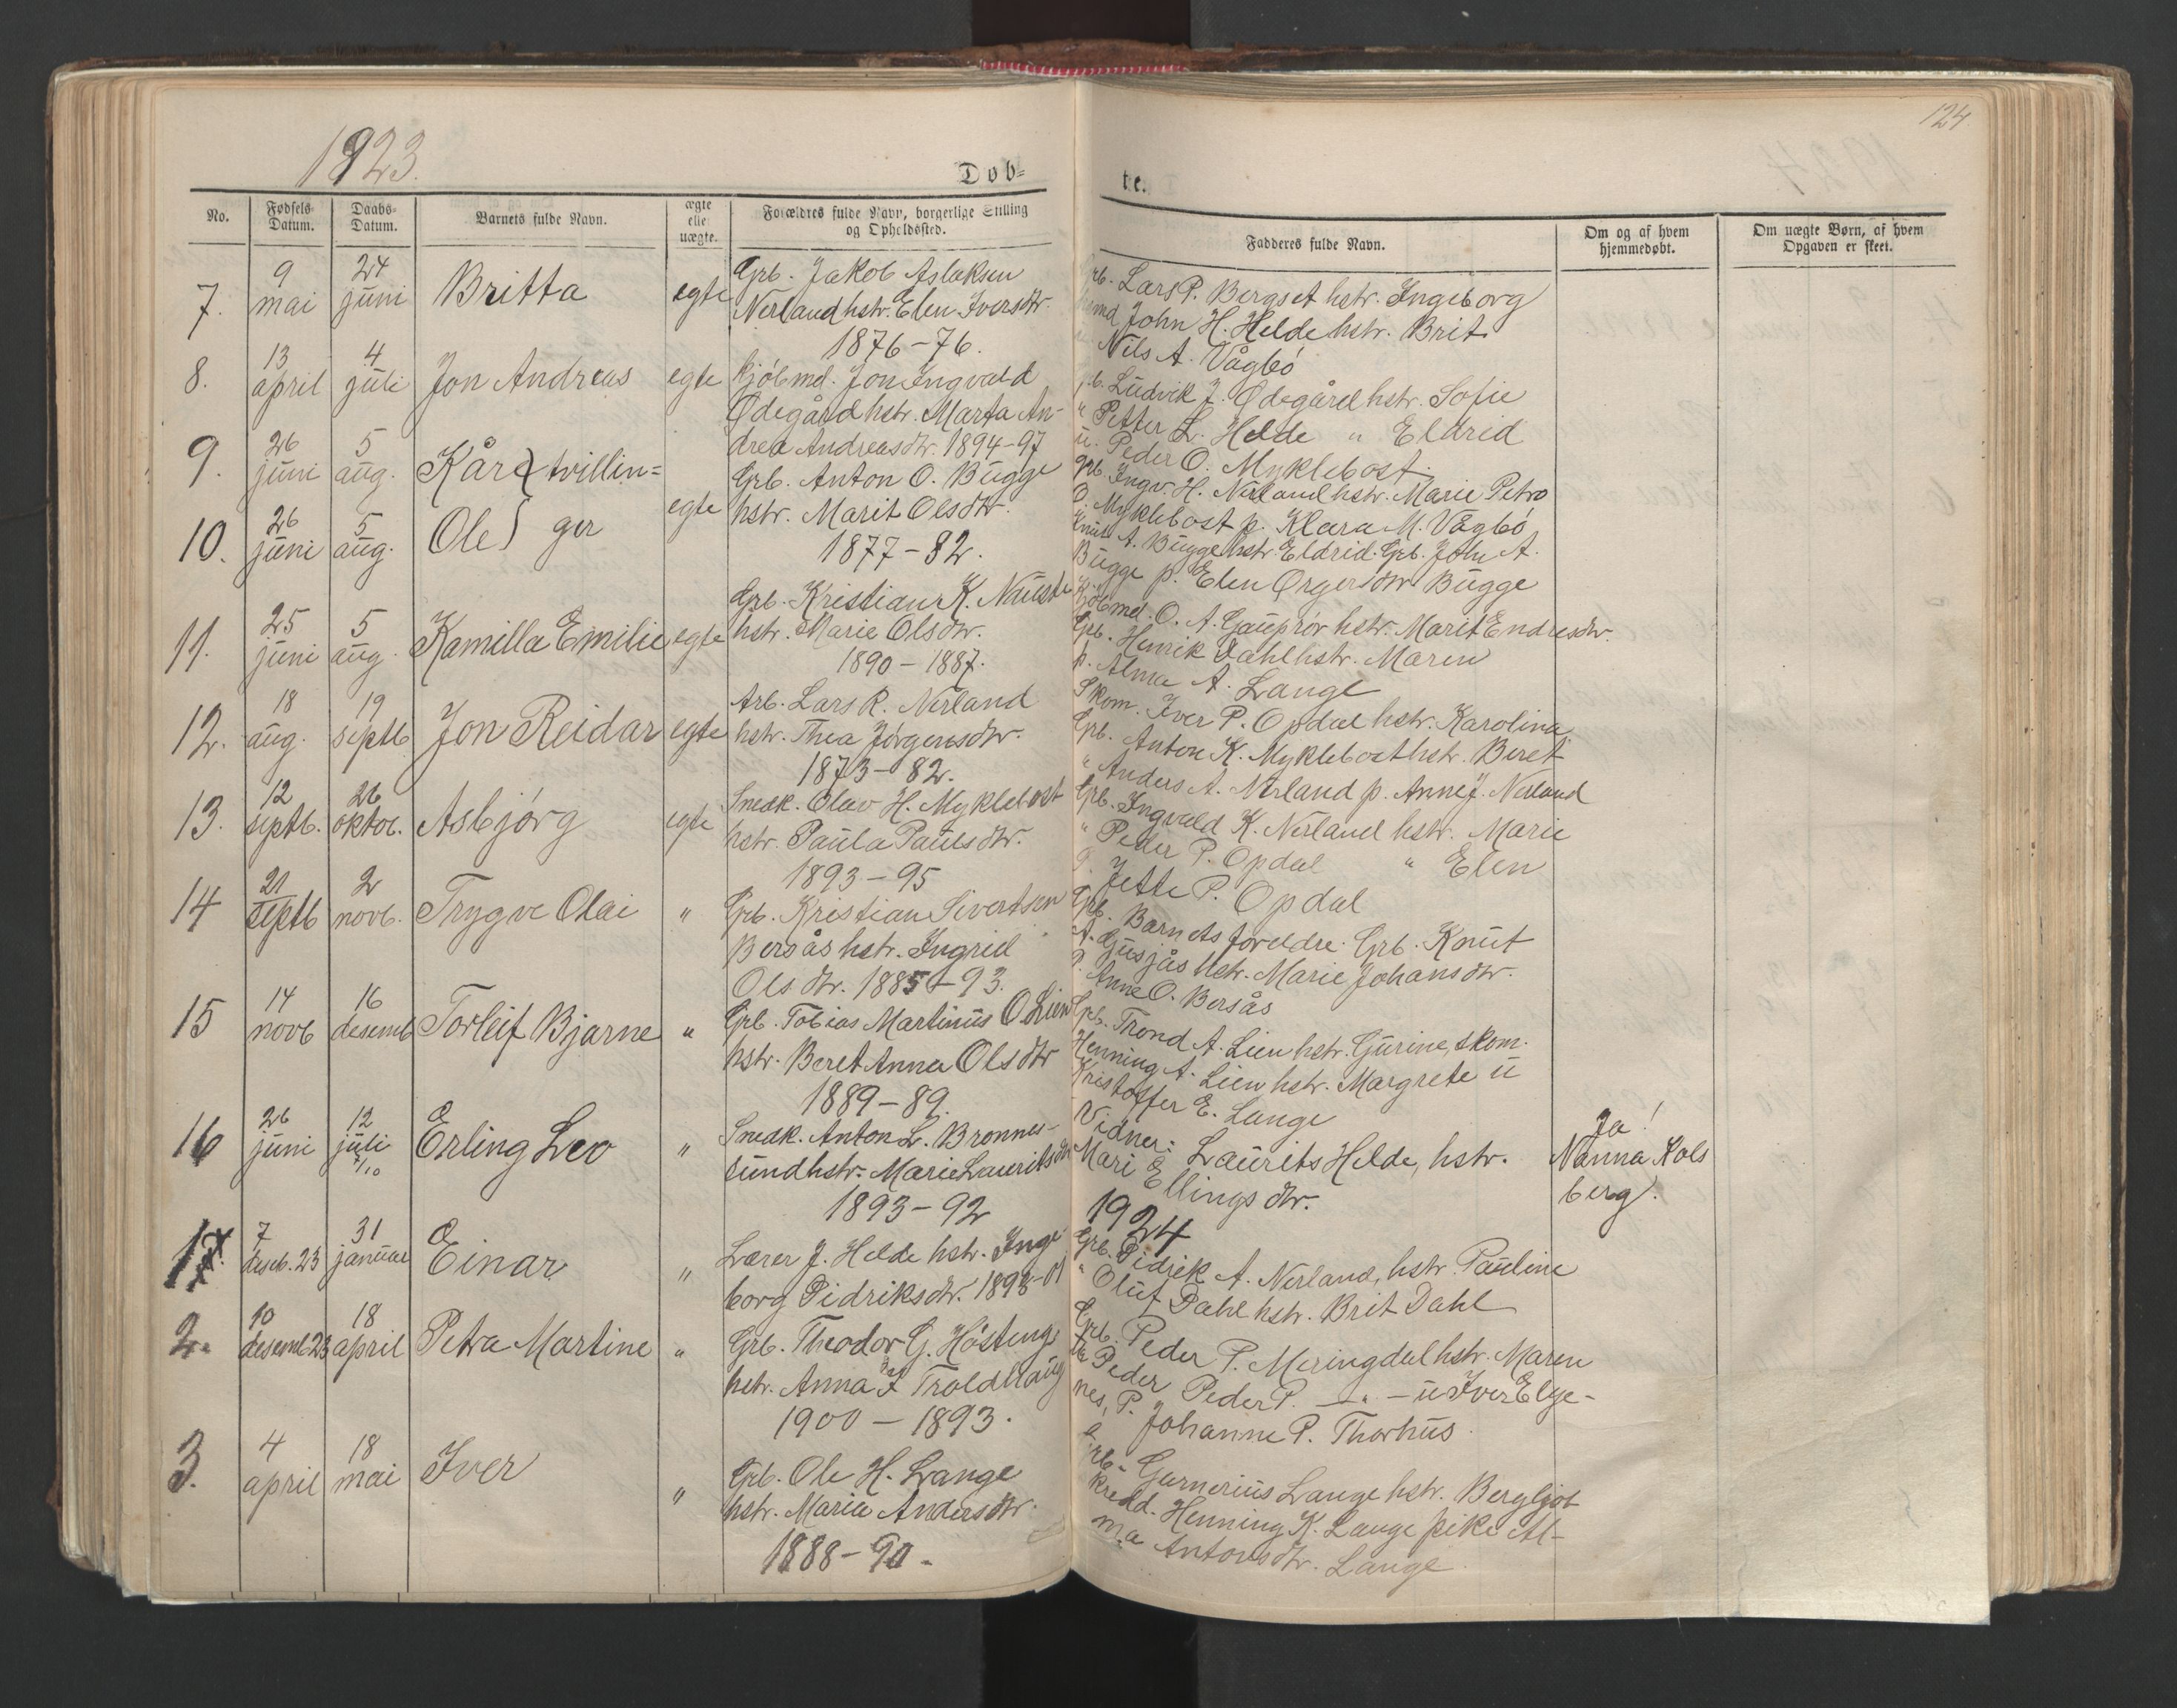 1923.
124
Døb=
te.
No.
Fødsels-
Datum.
Daabs-
Datum.
Barnets fulde Navn.
ægte
elle
uægte.
Forældres fulde Navn, borgerlige Stilling
og Opholdssted.
Fadderes fulde Navn.
Om og af hvem
hjemmedøbt.
Om uægte Børn, af hvem
Opgaven er skeet.
7. 9 mai 24 juni Britta egte
Grb. Jakob Aslaksen
Nerland hstr. Elen Iversdtr.
1876-76.
Grb. Lars P. Bergset hstr. Ingeborg
John H. Helde hstr. Brit
Nils A. Vågbø
8. 13 april 4 juli Jon Andreas egte
Kjøbmd. Jon Ingvald
Ødegård hstr. Marta An-
drea Andreasdtr. 1894-97
Ludvik J. Ødegård hstr. Sofie
" Petter L. Helde " Eldrid
u. Peder O. Myklebost.
9. 26 juni 5 aug. Kåre } tvillin=
10. 26 juni 5 aug. Ole } ger egte
Grb. Anton O. Bugge
hstr. Marit Olsdtr.
1877-82.
Grb. Ingv. H. Nerland hstr. Marie Petro
O. Myklebost p. Klara M. Vågbø
Knut A. Bugge hstr. Eldrid. Grb. John A.
Bugge p. Elen Ørgersdtr Bugge
11. 25 juni 5 aug. Kamilla Emilie egte
Grb. Kristian K. Nauste
hstr. Marie Olsdtr.
1890-1887.
Kjøbmd. O. A. Gauprør hstr. Marit Endresdtr.
Grb. Henrik Dahl hstr. Maren
p. Alma A. Lange
12. 18 aug. 19 septb Jon Reidar egte
Arb. Lars R. Nerland
hstr. Thea Jørgensdtr.
1873-82.
Skom. Iver P. Opdal hstr. Karolina
Grb. Anton K. Myklebost hstr. Beret
" Anders A. Nerland p. Anne J. Nerland
13. 12 septb. 26 oktob. Asbjørg egte
Snedk. Olav H. Myklebost
hstr. Paula Paulsdtr.
1893-95
Grb. Ingvald K. Nerland hstr. Marie
" Peder P. Opdal " Elen
Jette P. Opdal
14 21 septb 2 novb. Trygve Olai "
Grb. Kristian Sivertsen
Bersås hstr. Ingrid
Olsdtr. 1885-93.
Barnets foreldre. Grb. Knut
A. Gusjås hstr. Marie Johansdtr.
P. Anne O. Bersås
15 14 novb 16 desemb Torleif Bjarne "
Grb. Tobias Martinus O. Lien
hstr. Beret Anna Olsdtr
1889-89.
Grb. Trond A. Lien hstr. Gurine, skom.
Henning A. Lien hstr. Margrete u
Kristoffer E. Lange
16 26 juni 12 juli 7/10 Erling Leo "
Snedk. Anton L. Bronnes-
sund hstr. Marie Lauritsdtr
1893-92
Vidner: Laurits Helde, hstr.
Mari Ellingsdtr.
Ja!
Nanna Kols
berg.
1924
1. 7 deseb. 23 31 januar Einar "
Lærer J. Helde hstr. Inge
borg Didriksdtr. 1898-01
Grb. Didrik A. Nerland, hstr. Pauline
" Oluf Dahl hstr. Brit Dahl
2. 10 desemb 23 18 april Petra Martine "
Grb. Theodor G. Høsteng
hstr. Anna I Troldhaug
1900-1893.
Grb. Peder P. Meringdal hstr. Maren
Peder Peder P. — " — u Iver Elge-
nes, P. Johanne P. Thorhus.
3. 4 april 18 mai Iver "
Grb. Ole H. Lange
hstr. Maria Andersdtr.
1888-90.
Garnerius Lange hstr. Bergljot
Henning K. Lange pike Al-
ma Antonsdtr. Lange